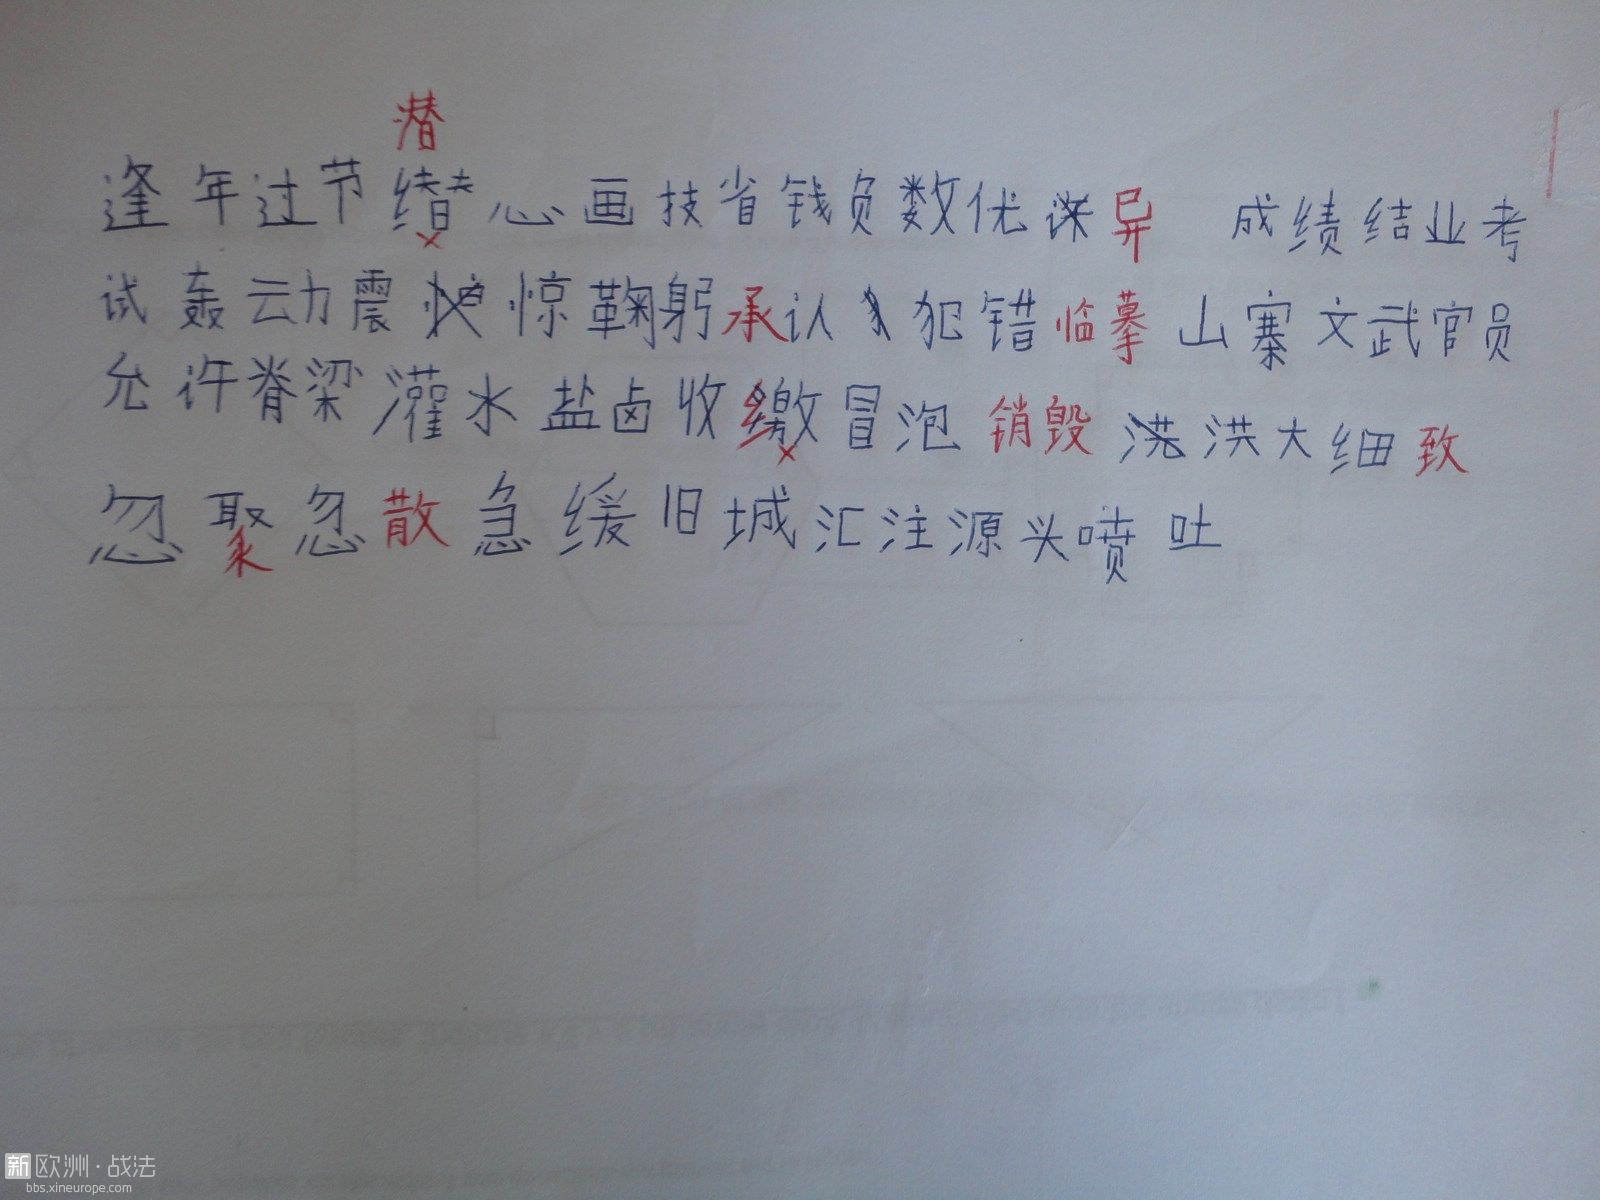 潜
逢年过节 心画技省钱负数优 异 成绩结业考
试轰动震惊鞠躬承认犯错临摹山寨文武官员
允许脊梁灌水盐卤收缴冒泡销毁洪大细致
忽聚忽散急缓旧城汇注源头喷吐
新欧洲·战法
bbs.xineurope.com